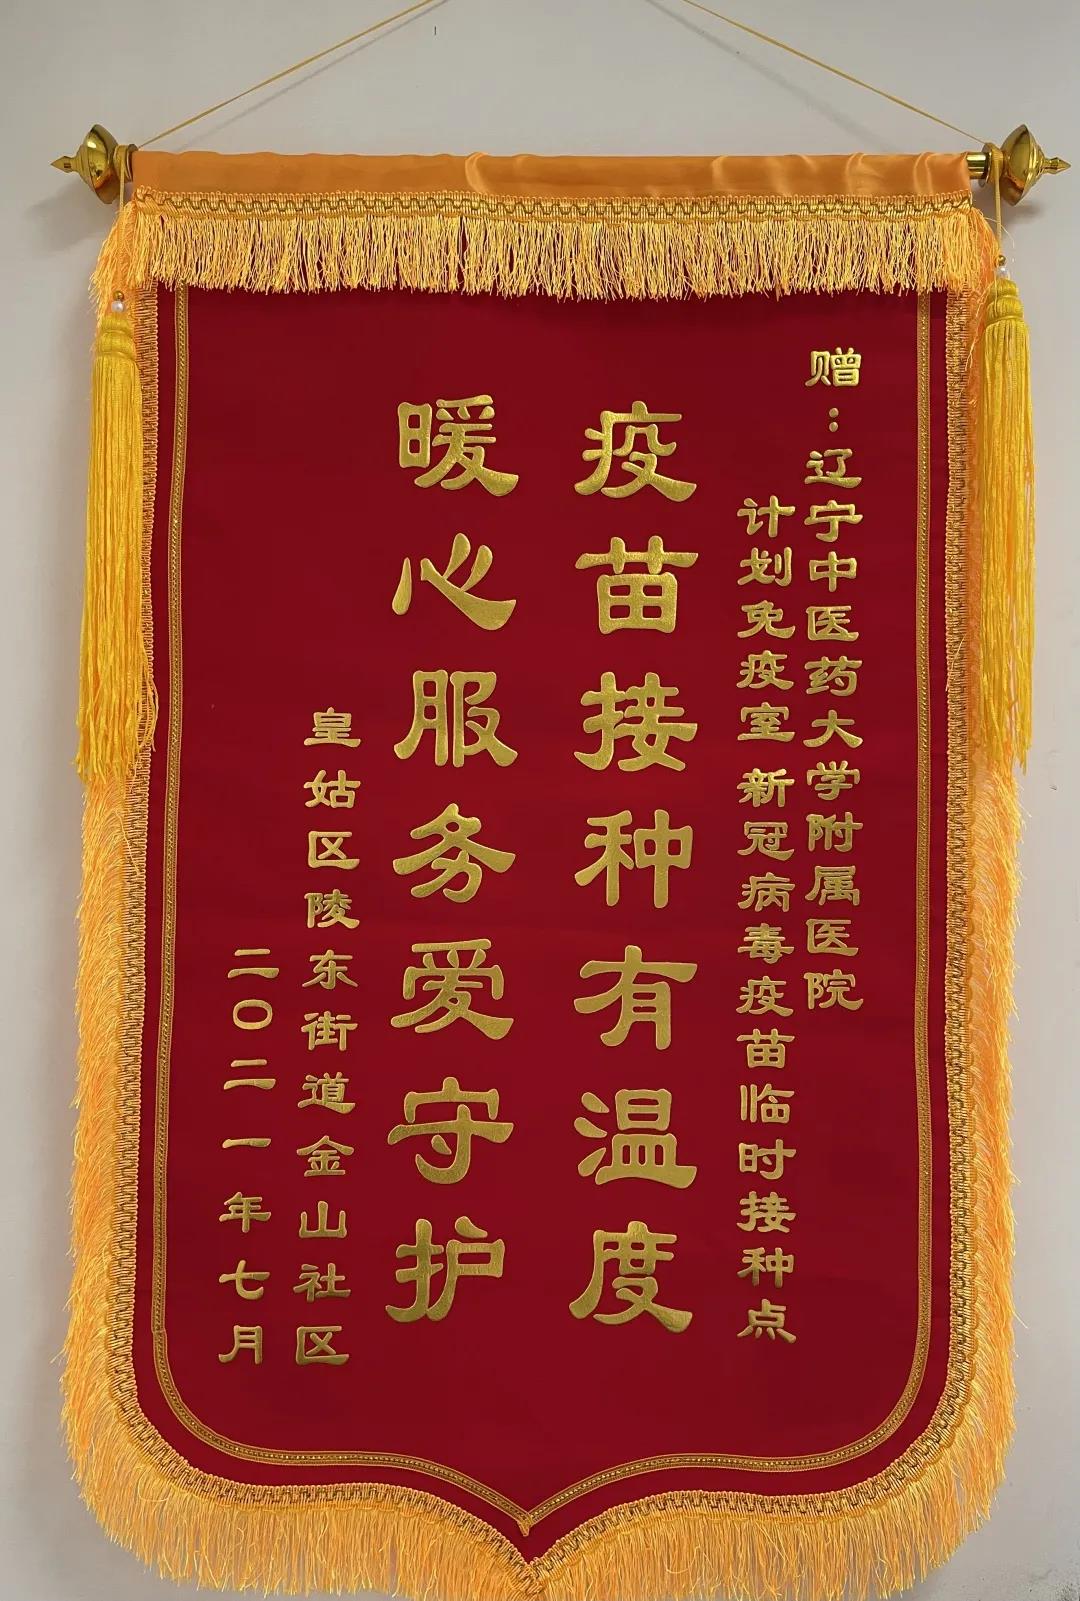 赠：辽宁中医药大学附属医院
计划免疫室 新冠病毒疫苗临时接种点
疫苗接种有温度
暖心服务爱守护
皇姑区陵东街道金山社区
二〇二一年七月